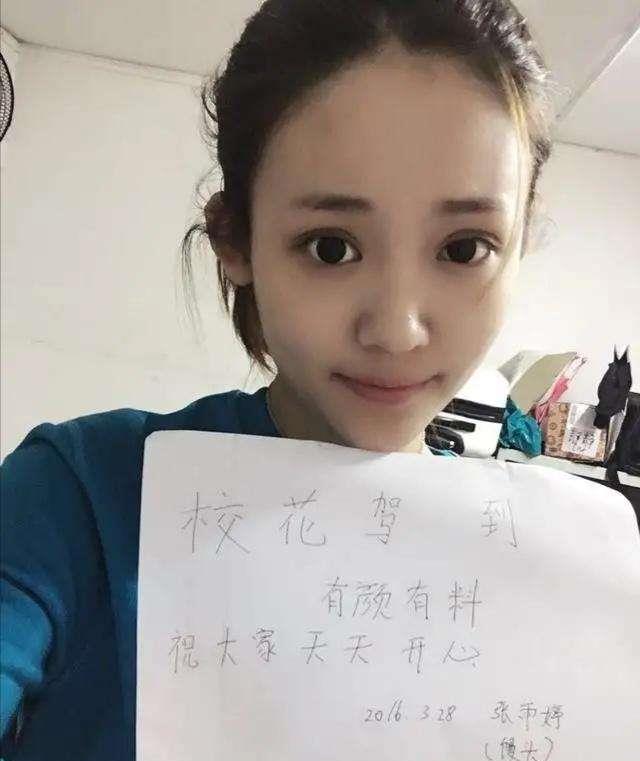 校花驾到
有颜有料
祝大家天天开心
2016.3.28 张予婷
(馒头)